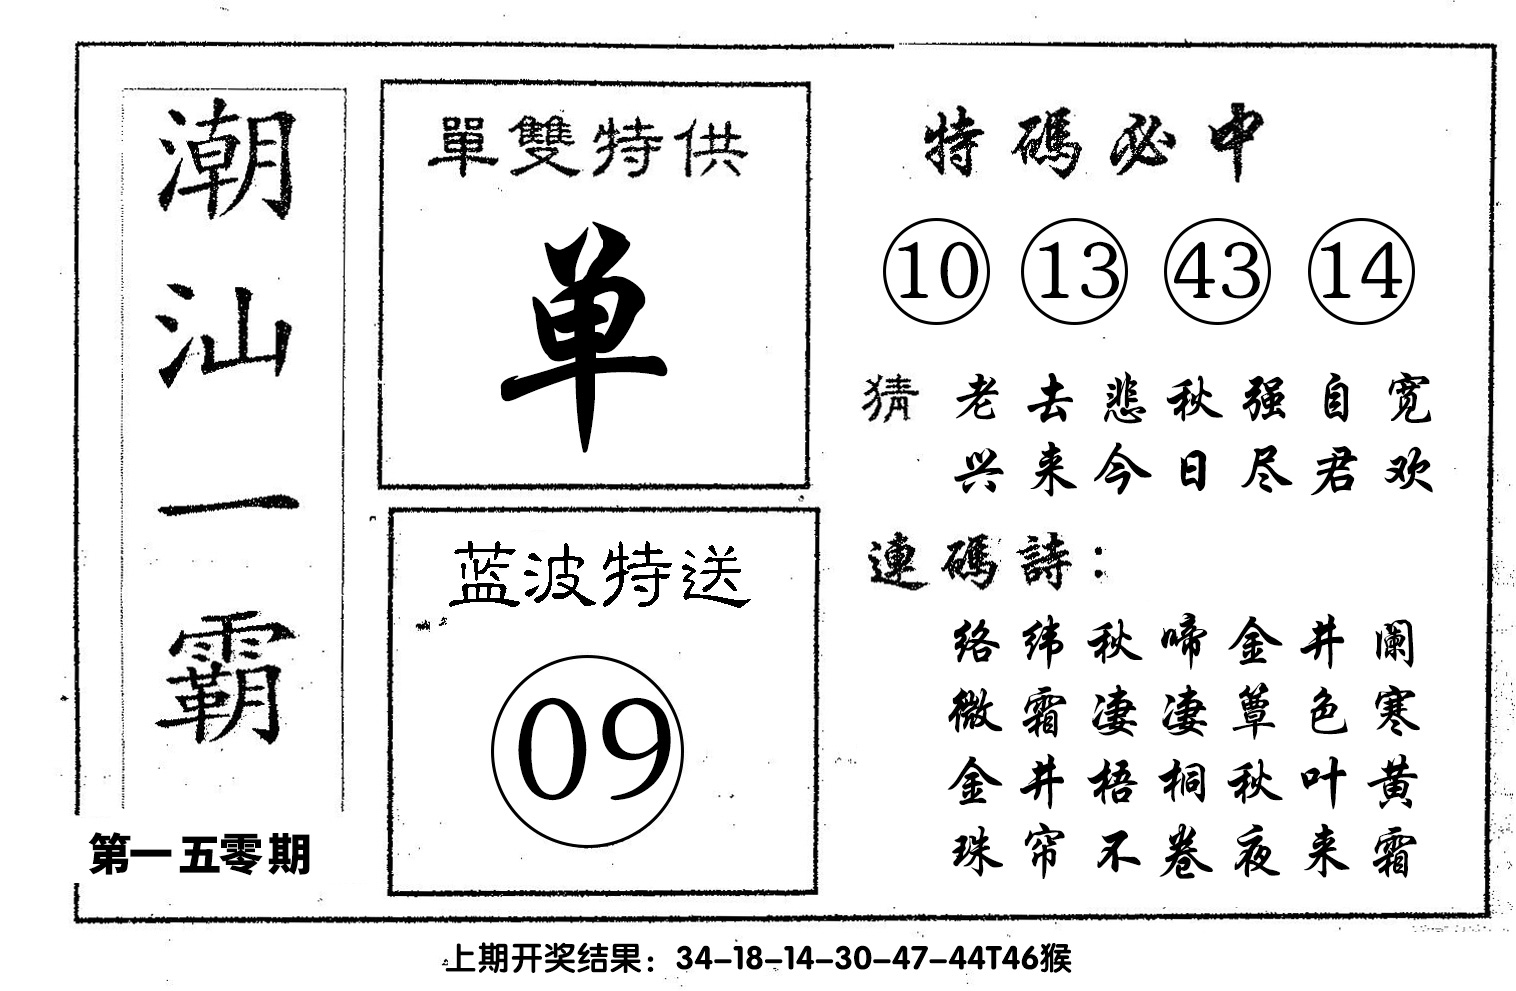 潮汕一霸
第一五零期
單雙特供
单
蓝波特送
09
特碼必中
10 13 43 14
猜 老去悲秋强自宽
兴来今日尽君欢
連碼詩：
络纬秋啼金井阑
微霜凄凄簟色寒
金井梧桐秋叶黄
珠帘不卷夜来霜
上期开奖结果：34-18-14-30-47-44T46猴